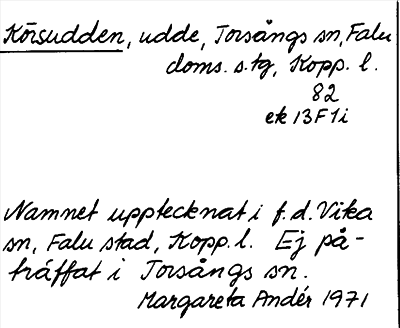 Körsudden, udde, Torsångs sn, Falu
doms. s.tg, Kopp. l.
82
ek 13F1i
Namnet upptecknat i f.d. Vika
sn, Falu stad, Kopp. l. Ej på-
träffat i Torsångs sn.
Margareta Andér 1971